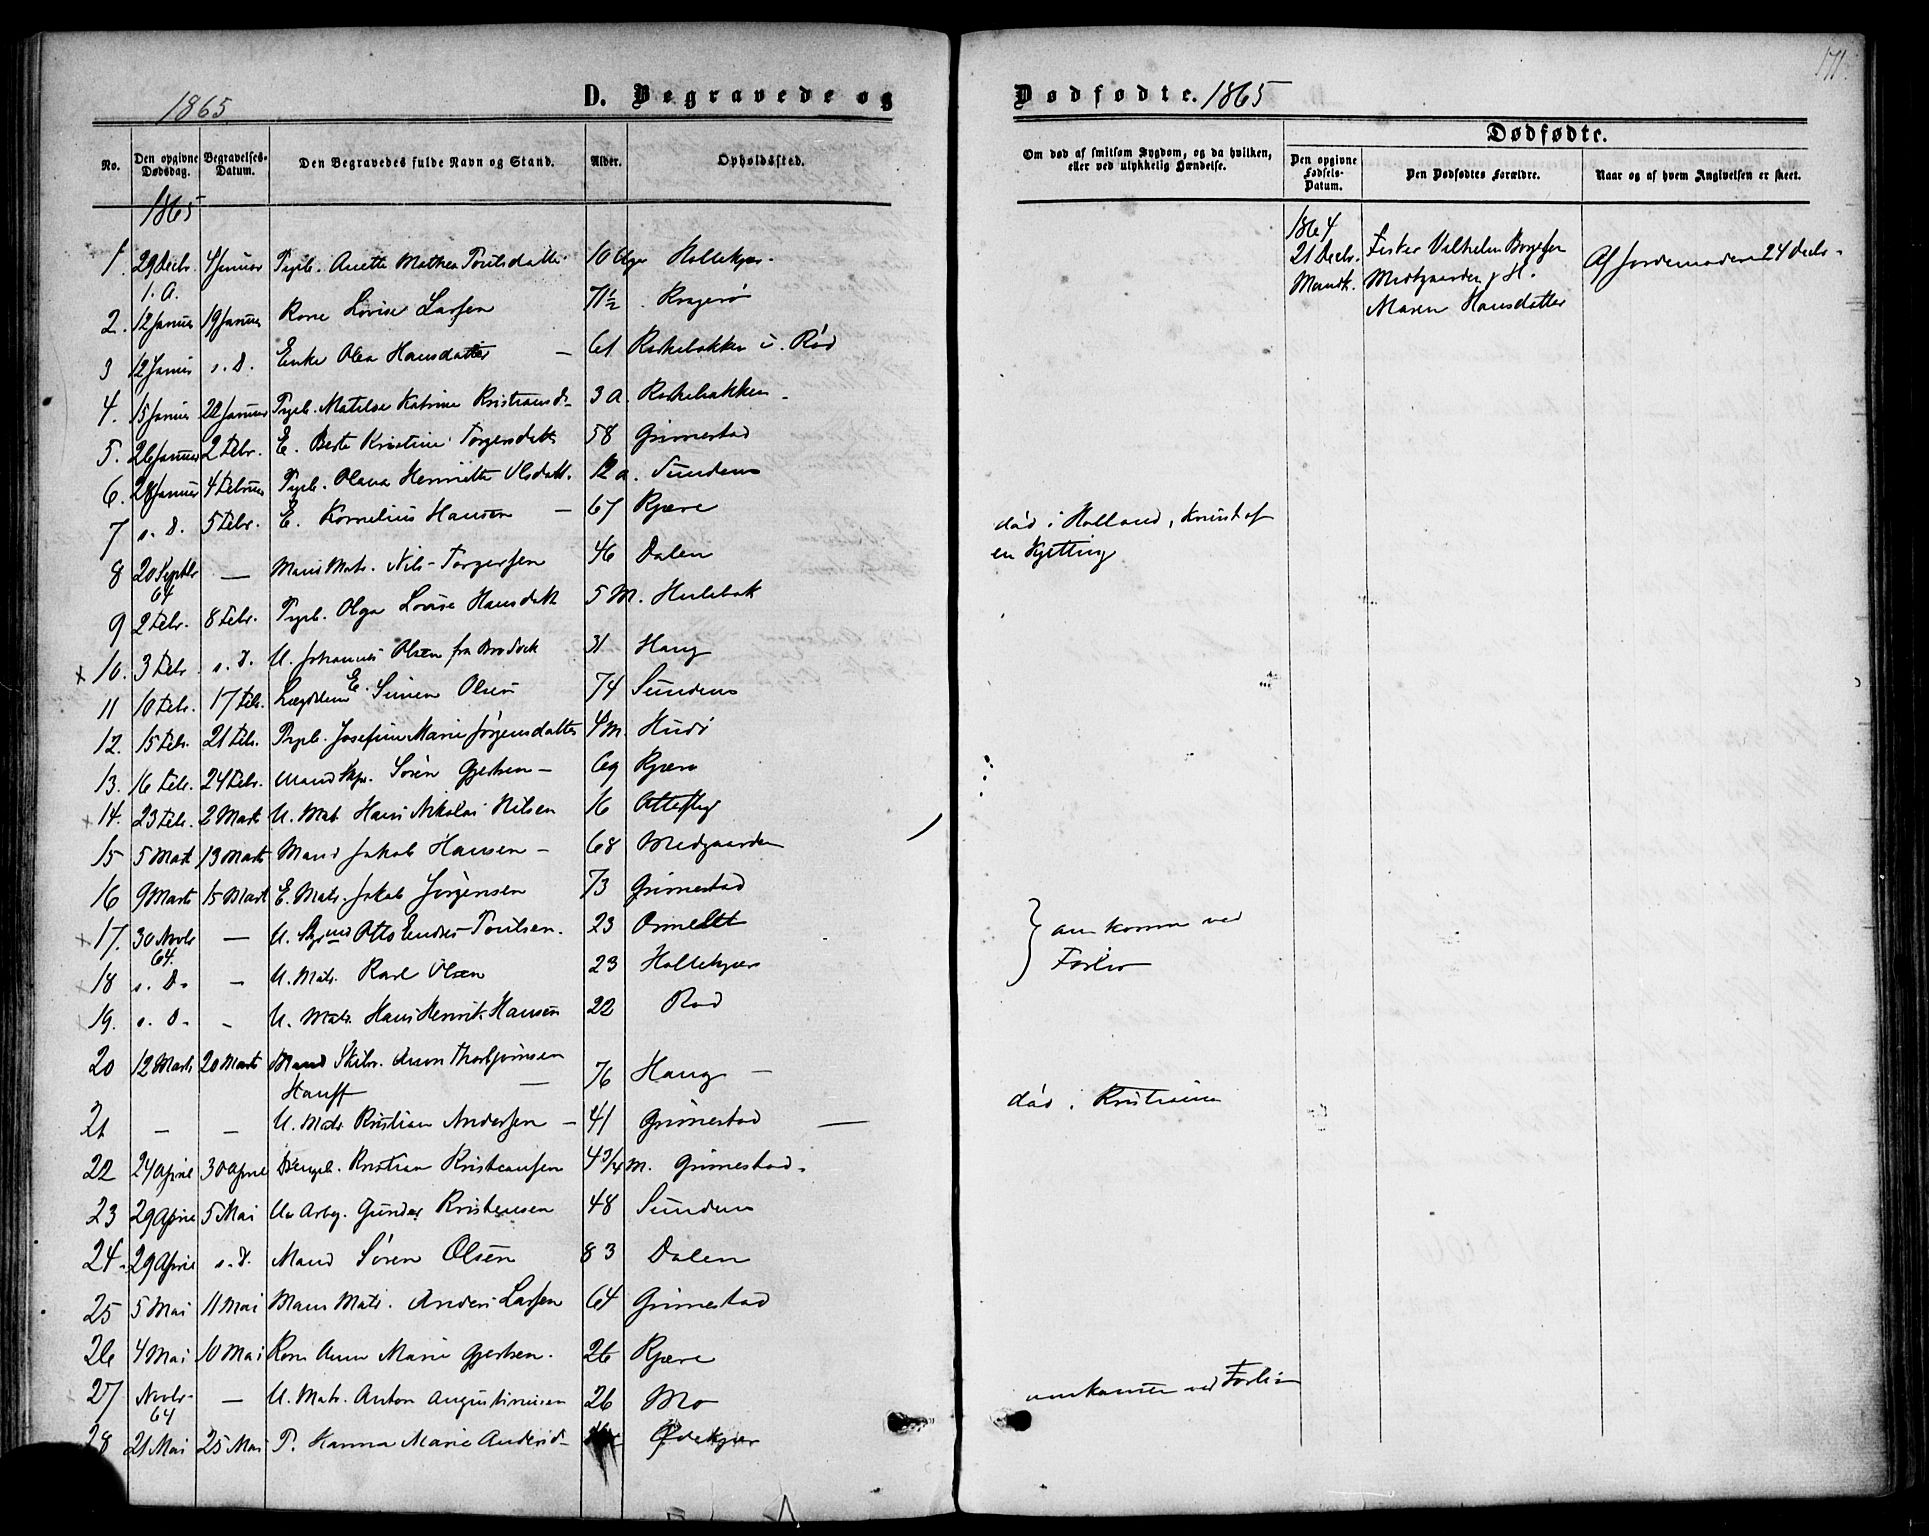 1865.
D. Begravede og
No.
Den opgivne Dødsdag.
Begravelses-Datum.
Den Begravedes fulde Navn og Stand.
Alder.
Opholdssted.
1865
1. 29 Decbr. 4 Januar Pigeb. Anette Mathea Poulsdatter 10 Uger Hollekjær.
1. A.
2. 12 Januar 19 Januar Kone Lovise Larsen 71½ Kragerø
3 12 Januar s. D. Enke Olea Hansdatter — 61 Kirkebakken u. Rød
4. 15 Januar 22 Januar Pigeb. Matilde Katrine Kristiansd. 3 a. Kirkebakken
5. 26 Januar 2 Febr. E. Berte Kristine Torgersdatter 58 Grimestad
6. 28 Januar 4 Februar Pigeb. Olava Henriette Olsdatt. 12 a. Sundene
7 s. D. 5 Febr. E. Kornelius Hansen — 67 Kjære
8 20 Septbr 64 — Mand Matr. Nils Torgersen 46 Dalen
9 2 Febr. 8 Febr. Pigeb. Olga Lovise Hansdatt 5 M. Hulebak
x 10. 3 Febr. s. D. U. Johannes Olsen fra Brodvik 31 Haug
11 10 Febr. 17 Febr. Lægdslem E. Simen Olsen 74 Sundene
12. 15 Febr. 21 Febr. Pigeb. Josefine Marie Jørgensdatter 4 M. Hudø
13. 16 Febr. 24 Febr. Mand Søren Gjertsen — 69 Kjære
x 14. 23 Febr. 2 Marts U. Matr. Hans Nikolai Nilsen 16
15 5 Marts 13 Marts Mand Jakob Hansen — 68 Medgaarden
16 9 Marts 15 Marts E. Matr. Jakob Jørgensen 73 Grimestad
x 17. 30 Novbr 64. — U. Otto Endres Poulsen. 23 Ormelet
x 18 s. D. — U. Matr. Karl Olsen 23 Hollekjær
x 19. s. D. - U. Matr. Hans Henrik Hansen 22 Rød
20 12 Marts 20 Marts Mand Skibr. Anon Thorbjørnsen
Hauff — 76 Haug —
21 — — U. Matr. Kristian Andersen — 41 Grimestad —
22 24 April 30 April Drengeb. Kristian Kristiansen 4 3/4 M. Grimestad.
23 29 April 5 Mai U. Arb. Gunder Kristensen 48 Sundene
24. 29 April s. D. Mand Søren Olsen 83 Dalen
25 5 Mai 11 Mai Mand Matr. Anders Larsen 64 Grimestad
26 4 Mai 10 Mai Kone Anne Marie Gjertsen. 26 Kjære
27 Novbr. 64 — U. Matr. Anton Augustinussen 26 Mo
28 21 Mai 25 Mai P. Hanna Marie Andersd. Ødekjær
171.
Dødfødte. 1865
Om død af smitsom Sygdom, og da hvilken, eller ved ulykkelig Hændelse.
Dødfødte.
Den opgivne Fødsels-Datum.
Den Dødfødtes Forældre.
Naar og af hvem Angivelsen er skeet.
1864
21 Decbr.
Mandk.
Fisker Vilhelm Borgesen
Medgaarden & H.
Maren Hansdatter
Af Jordemoderen 24 Decbr.
død i Holland, knust af
en Kjetting
omkomne ved
Forlis
død i Kristiania
omkommen ved Forlis